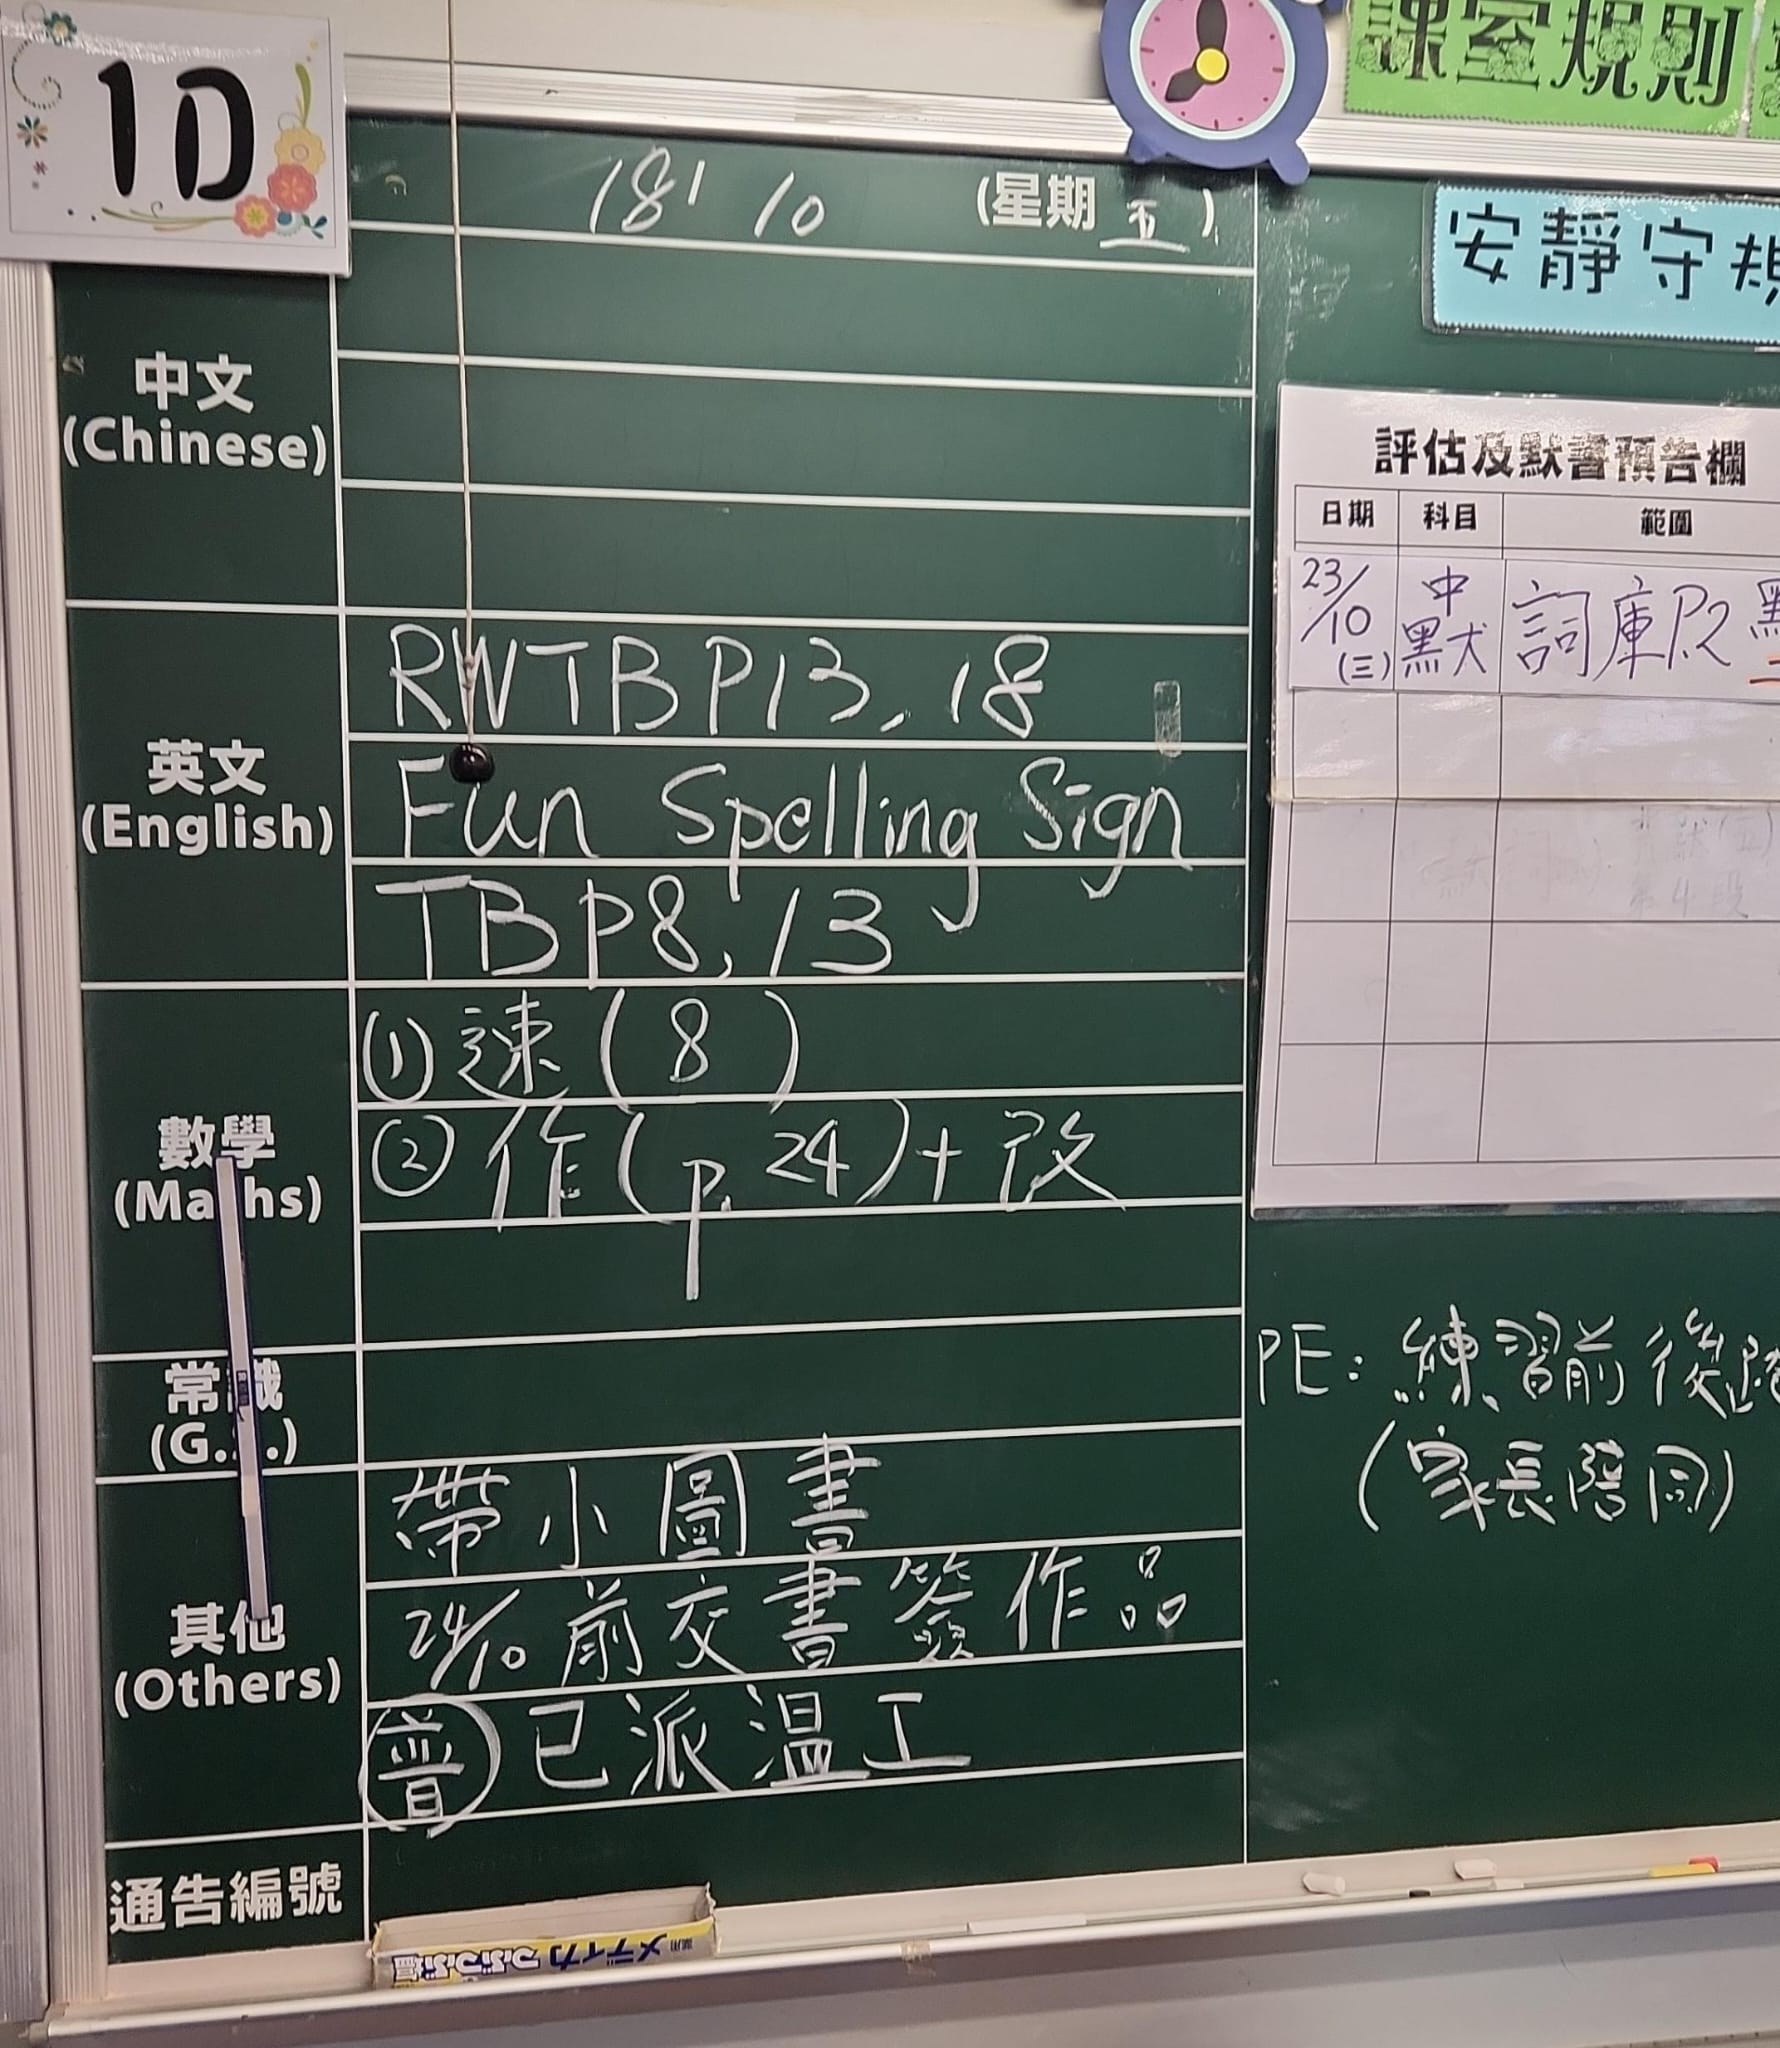 1D
課室規則
安靜守規
18/10 (星期五)
中文
(Chinese)
英文
(English)
RWTB P13, 18
Fun Spelling Sign
TB P8, 13
數學
(Maths)
(1) 速(8)
(2) 作(p.24)+改
常識
(G.S.)
其他
(Others)
帶小圖書
24/10前交書簽作品
普 已派温工
通告編號
評估及默書預告欄
日期 科目 範圍
23/10 (三) 中默 詞庫P.2
PE: 練習前後
(家長陪同)
メディカつぶつぶ